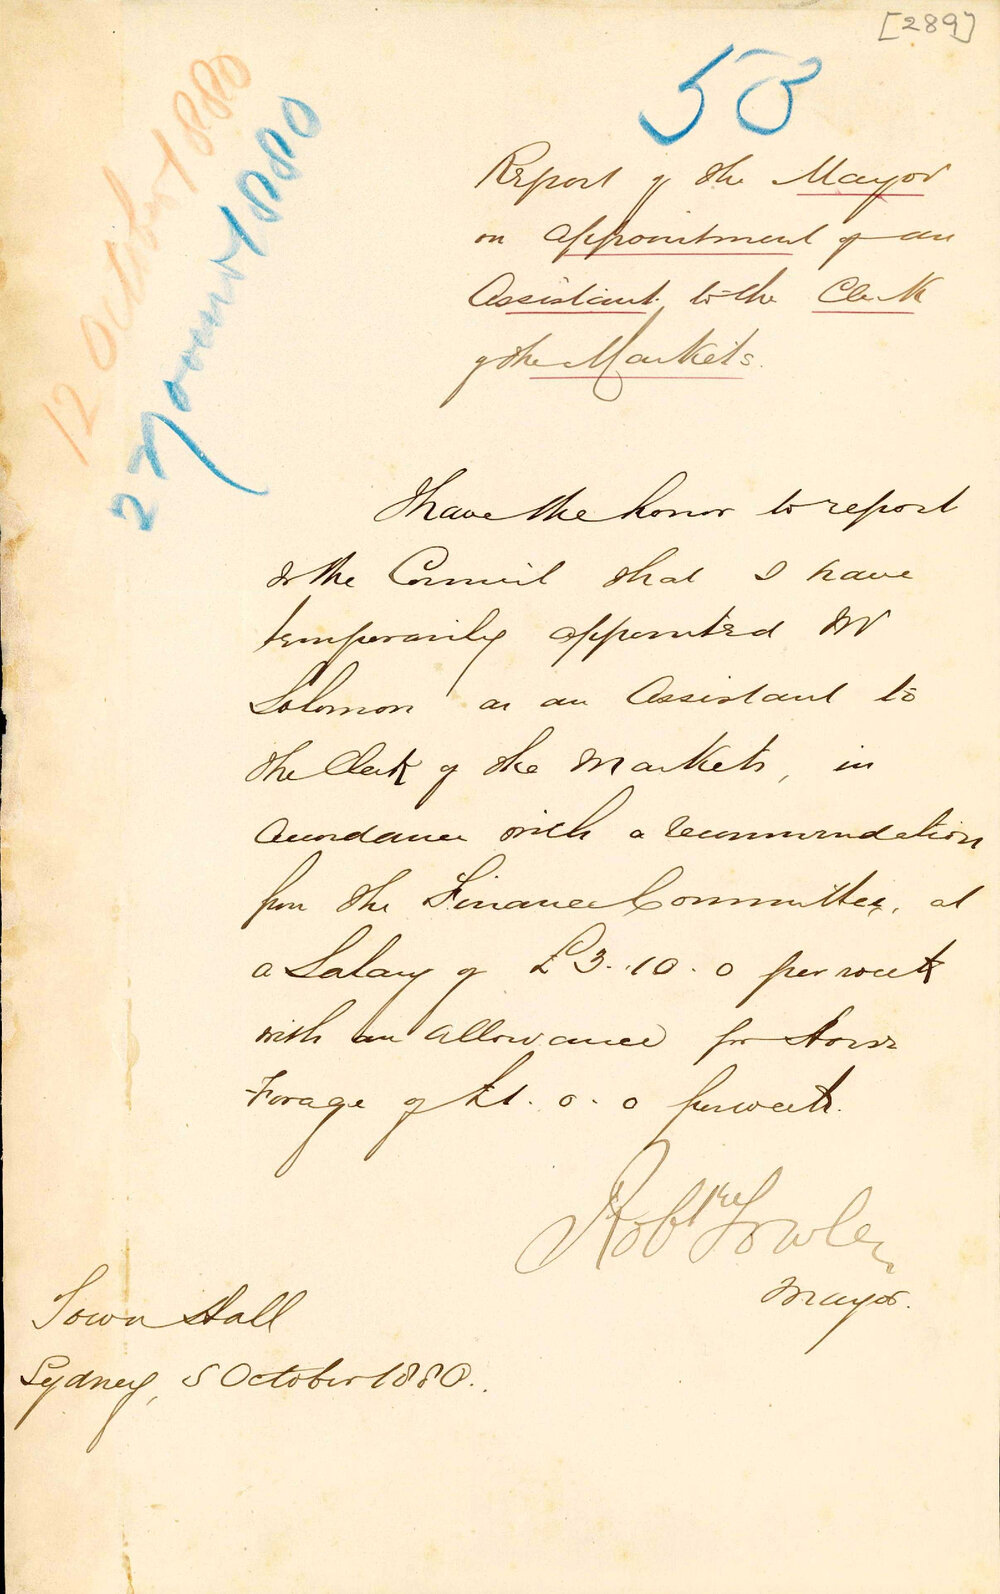 [289]
53
12 October 1880
2 November 1880
Report of the Mayor
on appointment of an
Assistant to the Clerk
of the Markets.
I have the honor to report
to the Council that I have
temporarily appointed Mr
Solomon as an Assistant to
the Clerk of the Markets, in
accordance with a recommendation
from the Finance Committee, at
a Salary of £3.10.0 per week
with an allowance for Horse
Forage of £1.0.0 per week.
Robt Fowler
Mayor.
Town Hall
Sydney, 5 October 1880.